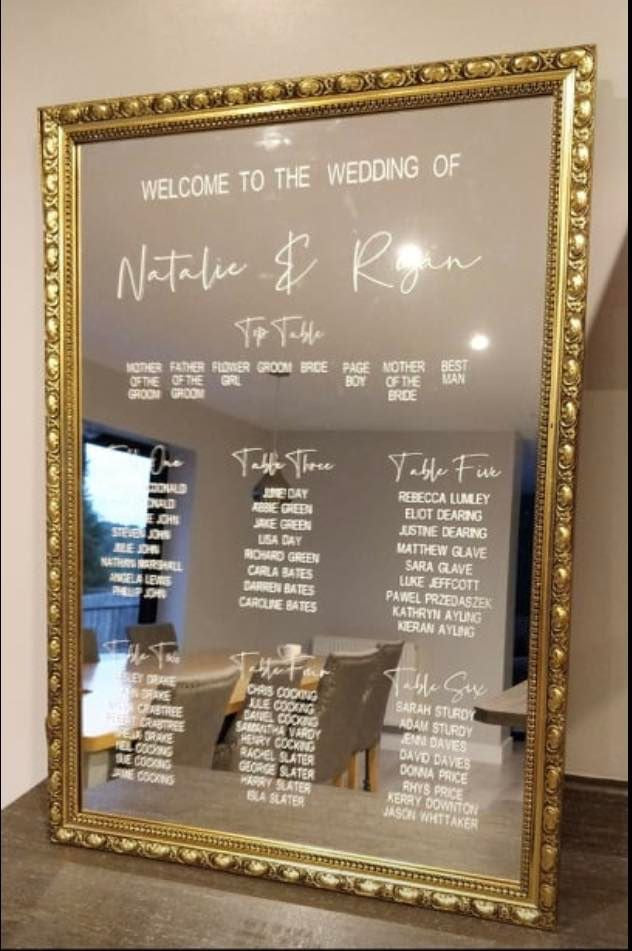 WELCOME TO THE WEDDING OF
Natalie & Ryan
Top Table
MOTHER OF THE GROOM
FATHER OF THE GROOM
FLOWER GIRL
GROOM
BRIDE
PAGE BOY
MOTHER OF THE BRIDE
BEST MAN
Table One
JOHN
STEVEN JOHN
JULIE JOHN
NATHAN MARSHALL
ANGELA LEWIS
PHILLIP JOHN
Table Two
DRAKE
DRAKE
CRABTREE
CRABTREE
DRAKE
NEIL COCKING
SUE COCKING
JAMIE COCKING
Table Three
JUNE DAY
ABBIE GREEN
JAKE GREEN
LISA DAY
RICHARD GREEN
CARLA BATES
DARREN BATES
CAROLINE BATES
Table Four
CHRIS COCKING
JULIE COCKING
DANIEL COCKING
SAMANTHA VARDY
HENRY COCKING
RACHEL SLATER
GEORGE SLATER
HARRY SLATER
ISLA SLATER
Table Five
REBECCA LUMLEY
ELIOT DEARING
JUSTINE DEARING
MATTHEW GLAVE
SARA GLAVE
LUKE JEFFCOTT
PAWEL PRZEDASZEK
KATHRYN AYLING
KIERAN AYLING
Table Six
SARAH STURDY
ADAM STURDY
JENNI DAVIES
DAVID DAVIES
DONNA PRICE
RHYS PRICE
KERRY DOWNTON
JASON WHITTAKER